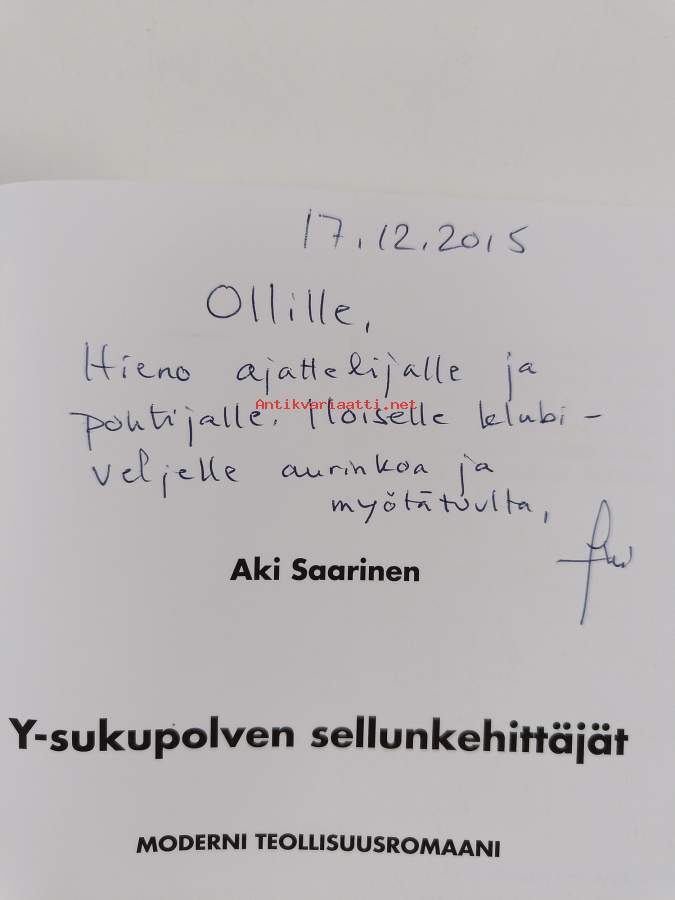 17.12.2015
Ollille,
Hieno ajattelijalle ja
Antikvariaatti.net
pohtijalle. Iloiselle klubi-
veljelle aurinkoa ja
myötätuulta,
Aki Saarinen
Y-sukupolven sellunkehittäjät
MODERNI TEOLLISUUSROMAANI